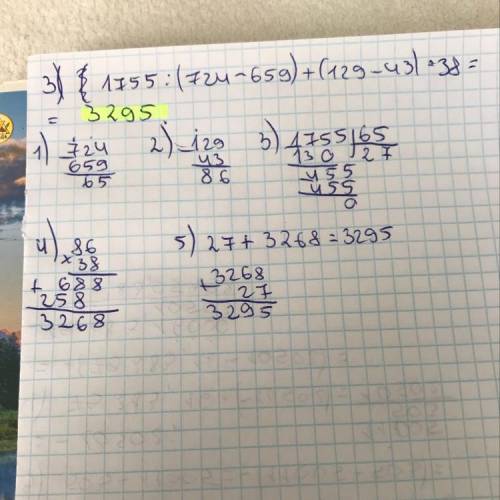 3) 1755 : (724 - 659) + (129 - 43) * 38 =
= 3295
1) 724
659
65
2) - 129
43
86
3) 1755 | 65
130 27
455
455
0
4) 86
× 38
+ 688
258
3268
5) 27 + 3268 = 3295
3268
+ 27
3295